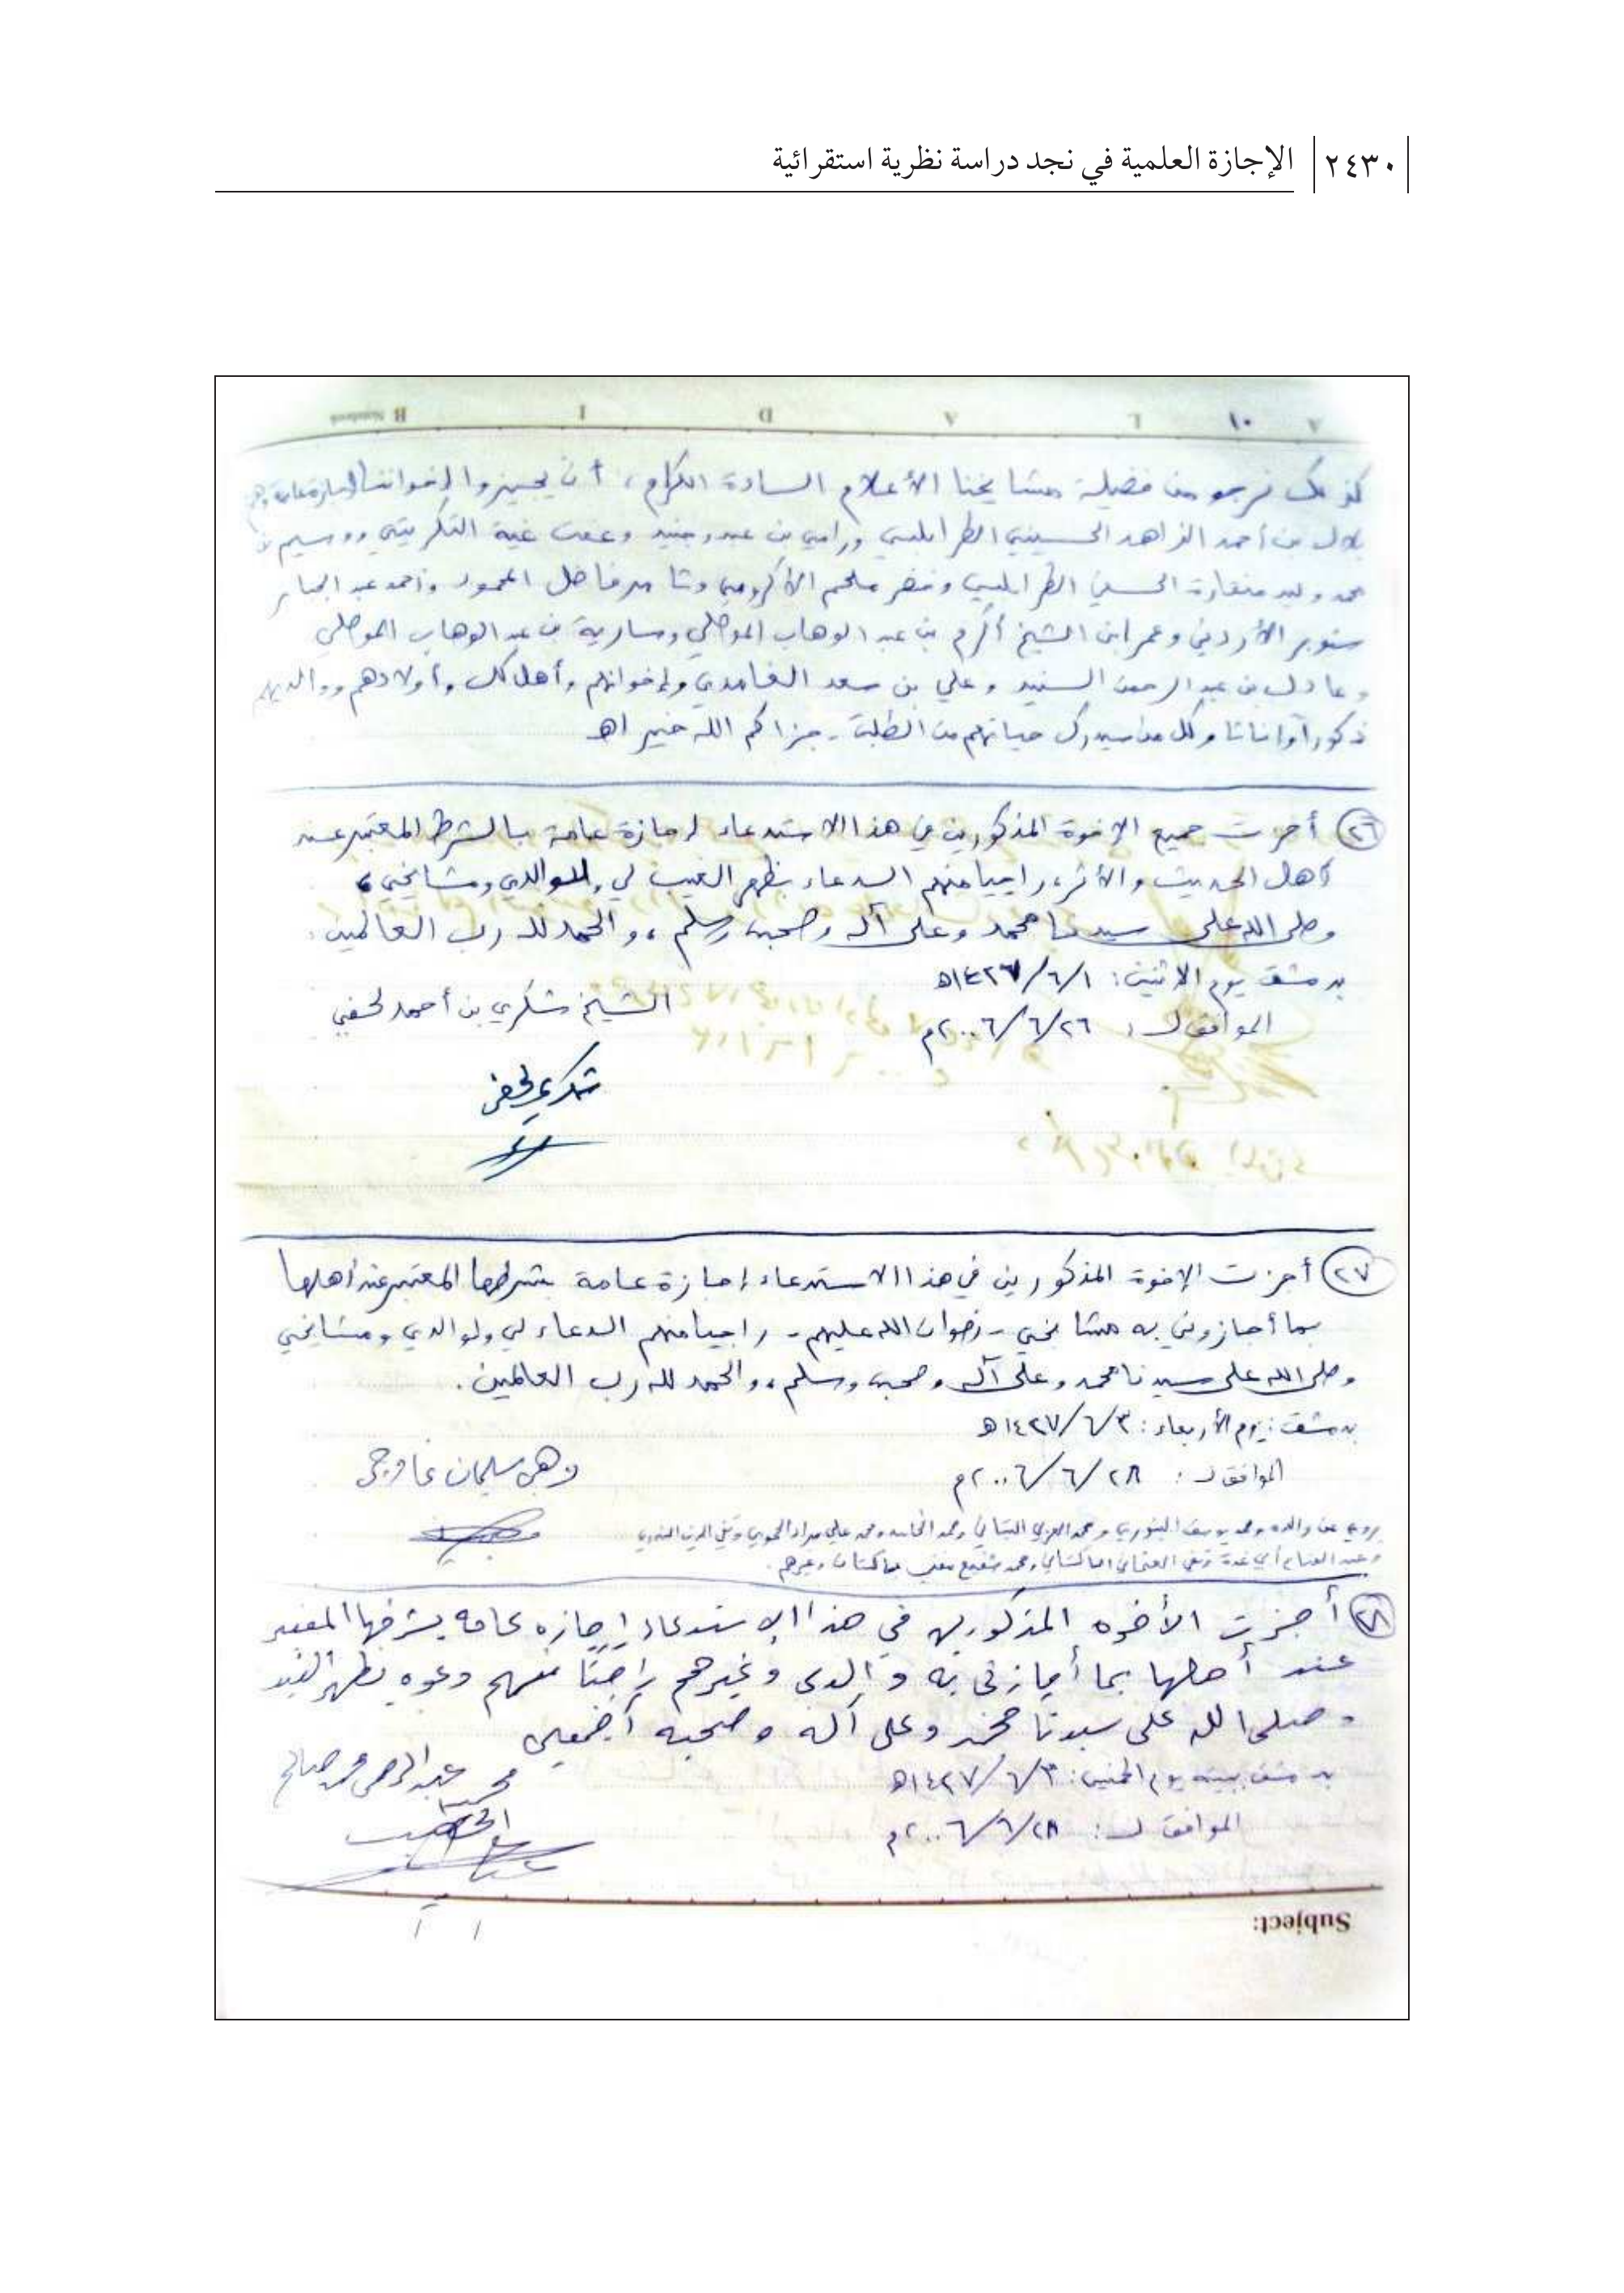 ٢٤٣٠ الإجازة العلمية في نجد دراسة نظرية استقرائية
كذلك نرجو من فضيلة مشايخنا الأعلام السادة الكرام، أن يجيزوا إخواننا إجازة عامة وهم
بلال بن أحمد الزاهد الحسيني الطرابلسي ورامي بن عبدو جنيد وعفت غية التكريتي ووسيم بن
محمد وليد منقارة الحسني الطرابلسي وخضر ملحم الأكرومي وشا مرفاضل المحمود وأحمد عبد الجبار
سنوبر الأردني وعمر ابن الشيخ أكرم بن عبد الوهاب الموصلي وسارية بن عبد الوهاب الموصلي
وعادل بن عبد الرحمن السنيد وعلي بن سعد الغامدي وإخوانهم وأهل كل وأولادهم ووالديهم
ذكوراً وإناثا وكل من سيدرك حياتهم من الطلبة - جزاكم الله خير اهـ
٢٦ أجزت جميع الإخوة المذكورين في هذا الاستدعاء إجازة عامة بالشرط المعتبر عند
أهل الحديث والأثر، راجيا منهم الدعاء بظهر الغيب لي ولوالدي ومشايخي،
وصلى الله على سيدنا محمد وعلى آله وصحبه وسلم، والحمد لله رب العالمين.
بدمشق يوم الاثنين: ١/٦/١٤٢٧هـ
الموافق لـ: ٢٦/٦/٢٠٠٦م
الشيخ شكري بن أحمد لحفي
شكري لحفي
٢٧ أجزت الإخوة المذكورين في هذا الاستدعاء إجازة عامة بشرطها المعتبر عند أهلها
بما أجازوني به مشايخي - رضوان الله عليهم - راجيا منهم الدعاء لي ولوالدي ومشايخي
وصلى الله على سيدنا محمد وعلى آله وصحبه وسلم، والحمد لله رب العالمين.
بدمشق: يوم الأربعاء: ٣/٦/١٤٢٧هـ
الموافق لـ: ٢٨/٦/٢٠٠٦م
وهبي سليمان غاوجي
يروي عن والده ومحمد يوسف البنوري ومحمد العربي التباني ومحمد الحامد ومحمد علي مراد الحموي وتقي الدين الندوي
وعبد الفتاح أبي غدة وتقي العثماني الباكستاني ومحمد شفيع مفتي باكستان وغيرهم.
٢٨ أجزت الأخوه المذكورين في هذا الإستدعاء إجازه عامه بشرطها المعتبر
عند أهلها بما أجازني به والدي وغيرهم راجيًا منهم دعوه بظهر الغيب
وصلى الله على سيدنا محمد وعلى آله وصحبه أجمعين
بدمشق ببيته يوم الخميس: ٣/٦/١٤٢٧هـ
الموافق لـ: ٢٨/٦/٢٠٠٦م
محمد عبد الرحمن محمد صالح
الخطيب
Subject: